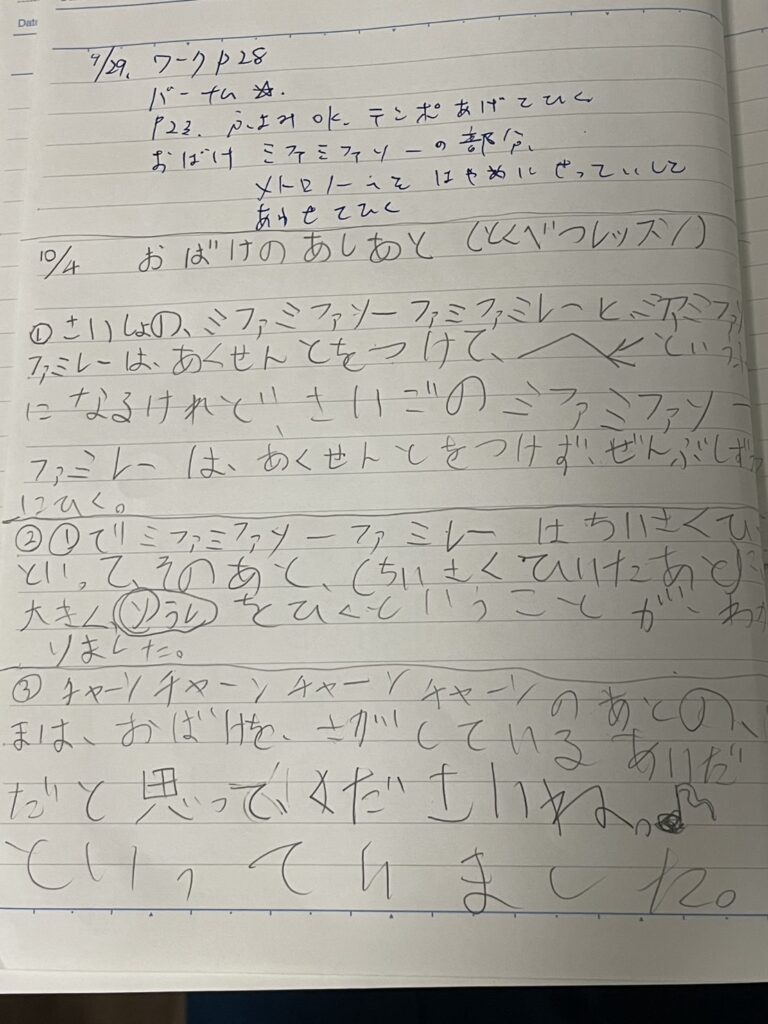 Date
9/29. ワーク p28
バーナム ☆.
p23. ふよみ OK. テンポあげてひく
おばけ ミファミファソーの部分、
メトロノームを はやめに せっていして
あわせてひく
10/4 おばけのあしあと (とくべつレッスン)
① さいしょの、ミファミファソーファミファミレーと、ミファミファ
ファミレーは、あくせんとをつけて、 とい
になるけれど、さいごのミファミファソー
ファミレーは、あくせんとをつけず、ぜんぶしず
にひく。
② ①でミファミファソーファミレーはちいさくひ
といって、そのあと、(ちいさくひいたあと)
大きくソラレをひくということが、わか
りました。
③ チャーンチャーンチャーンチャーンのあとの、
まは、おばけを、さがしているあいだ
だと思って、くださいね。♪
といっていました。